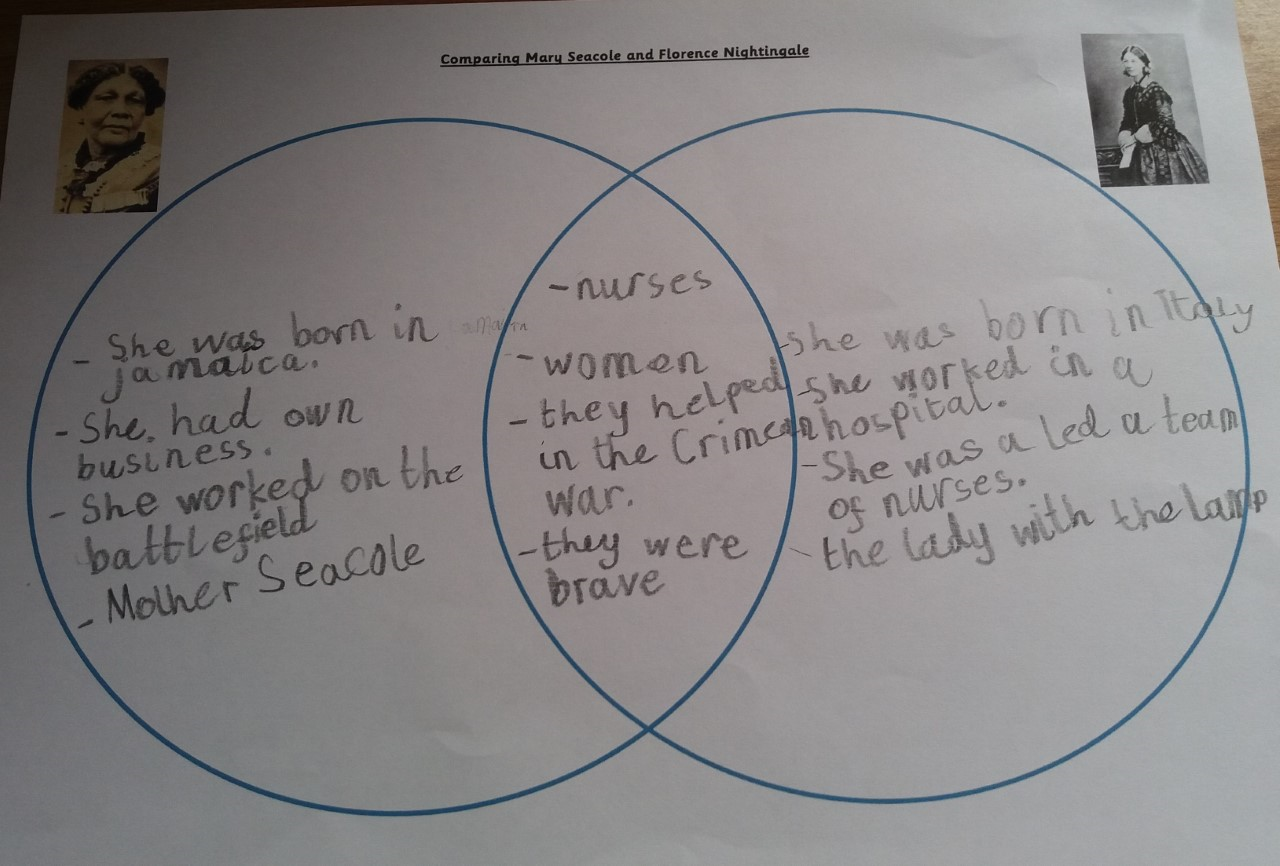 Comparing Mary Seacole and Florence Nightingale
- She was born in
jamaica.
- She. had own
business.
- She worked on the
battlefield
- Mother Seacole
- nurses
- women
- they helped
in the Crimean
war.
- they were
brave
- she was born in Italy
- she worked in a
hospital.
- She was a led a team
of nurses.
- the lady with the lamp